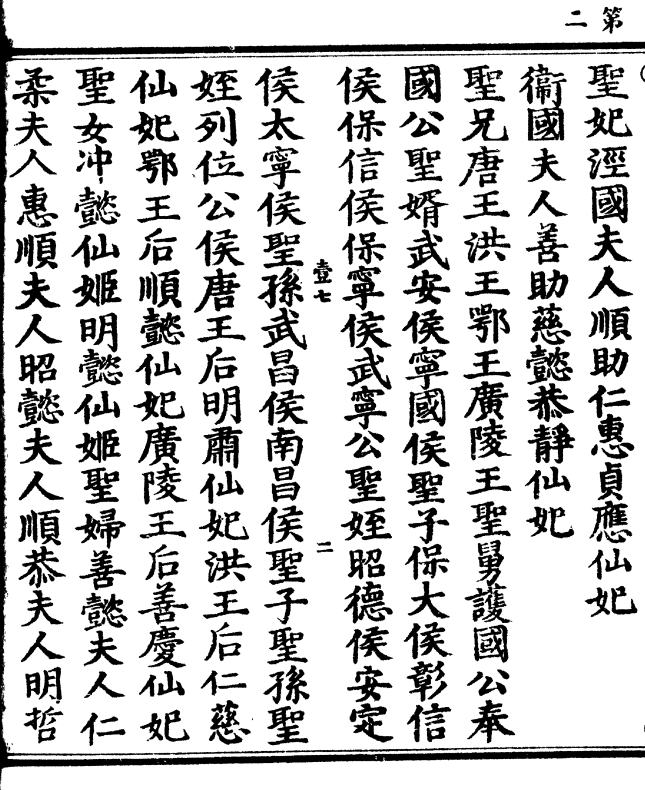 第二
聖妃涇國夫人順助仁惠貞應仙妃
衞國夫人善助慈懿恭靜仙妃
聖兄唐王洪王鄂王廣陵王聖舅護國公奉
國公聖婿武安侯寧國侯聖子保大侯彰信
侯保信侯保寧侯武寧公聖姪昭德侯安定
壹七
二
侯太寧侯聖孫武昌侯南昌侯聖子聖孫聖
姪列位公侯唐王后明肅仙妃洪王后仁慈
仙妃鄂王后順懿仙妃廣陵王后善慶仙妃
聖女冲懿仙姬明懿仙姬聖婦善懿夫人仁
柔夫人惠順夫人昭懿夫人順恭夫人明哲